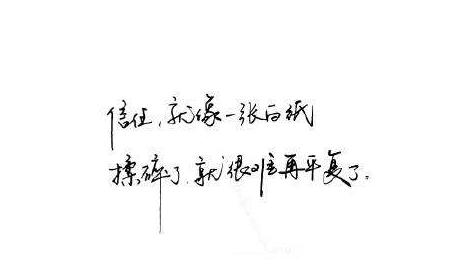 信任，就像一张白纸
揉碎了，就很难再平复了。